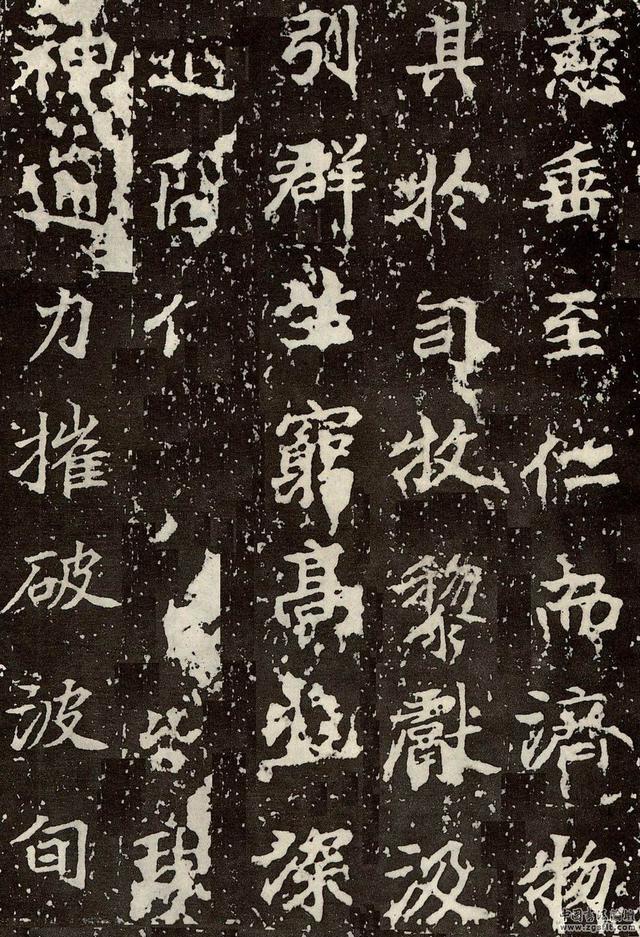 慈垂至仁而濟物
其於司牧黎獻汲
引群生窮高深
皆現
神通力摧破波旬
www.zgsflt.com